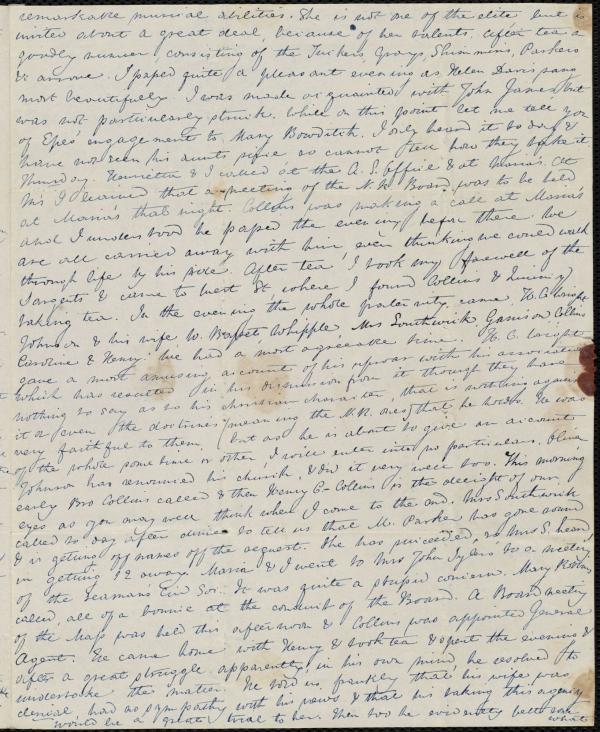 remarkable musical abilities. She is not one of the elite but is
invited about a great deal, because of her talents. After tea a
goodly number, consisting of the Tuckers, Grays, Shimmins, Parkers
& arrove. I passed quite a pleasant evening as Helen Davis sang
most beautifully. I was made acquainted with John James but
was not particularly struck. While on this point let me tell you
of Epes' engagement to Mary Bowditch. I only heard it to day &
have not seen his aunts since so cannot tell how they take it
Thursday. Henrietta & I called at the A. S. Office & at Maria's. At
this I learned that a meeting of the N. R. Board was to be held
at Maria's that night. Collins was making a call at Maria's
and I understood he passed the evening before there. We
are all carried away with him even thinking we could walk
through life by his side. After tea I took my farewell of the
Sargents & came to West St where I found Collins &
taking tea. In the evening the whole fraternity came H. C. Wright
Johnson & his wife W. Bassett Whipple Mrs Southwick Garrison Collins
Caroline & Henry. We had a most agreeable time. H. C. Wright
gave a most amusing account of his uproar with his association
which has resulted in his dismission from it though they have
nothing to say as to his christian character, that is nothing against
it or even the doctrines (meaning the N.R. ones) that he holds. He was
very faithful to them. (but as he is about to give an account
of the whole some time or other, I will enter into no particulars. Oliver
Johnson has renounced his church, & did it very well too. This morning
early Bro Collins called & then Henry C- Collins is the delight of our
eyes as you may well think when I come to the end. Mrs Southwick
called to day after dinner to tell us that M. Parker has gone round
& is getting off names off the request. She has succeeded, so Mrs S. heard
in getting 12 away. Maria & I went to Mrs John Tylers to a meeting
of the Seamans Em Soc. It was quite a stupid concern. Mary
called, all of a bonnie at the conduct of the Board. A Board meeting
of the Mass was held this afternoon & Collins was appointed General
Agent. He came home with Henry & took tea & spent the evening &
after a great struggle apparently in his own mind, he resolved to
undertake the matter. He told us frankly that his wife was
had no sympathy with his views & that his taking this agency
denial would be a great trial to her. Then too he evidently
what